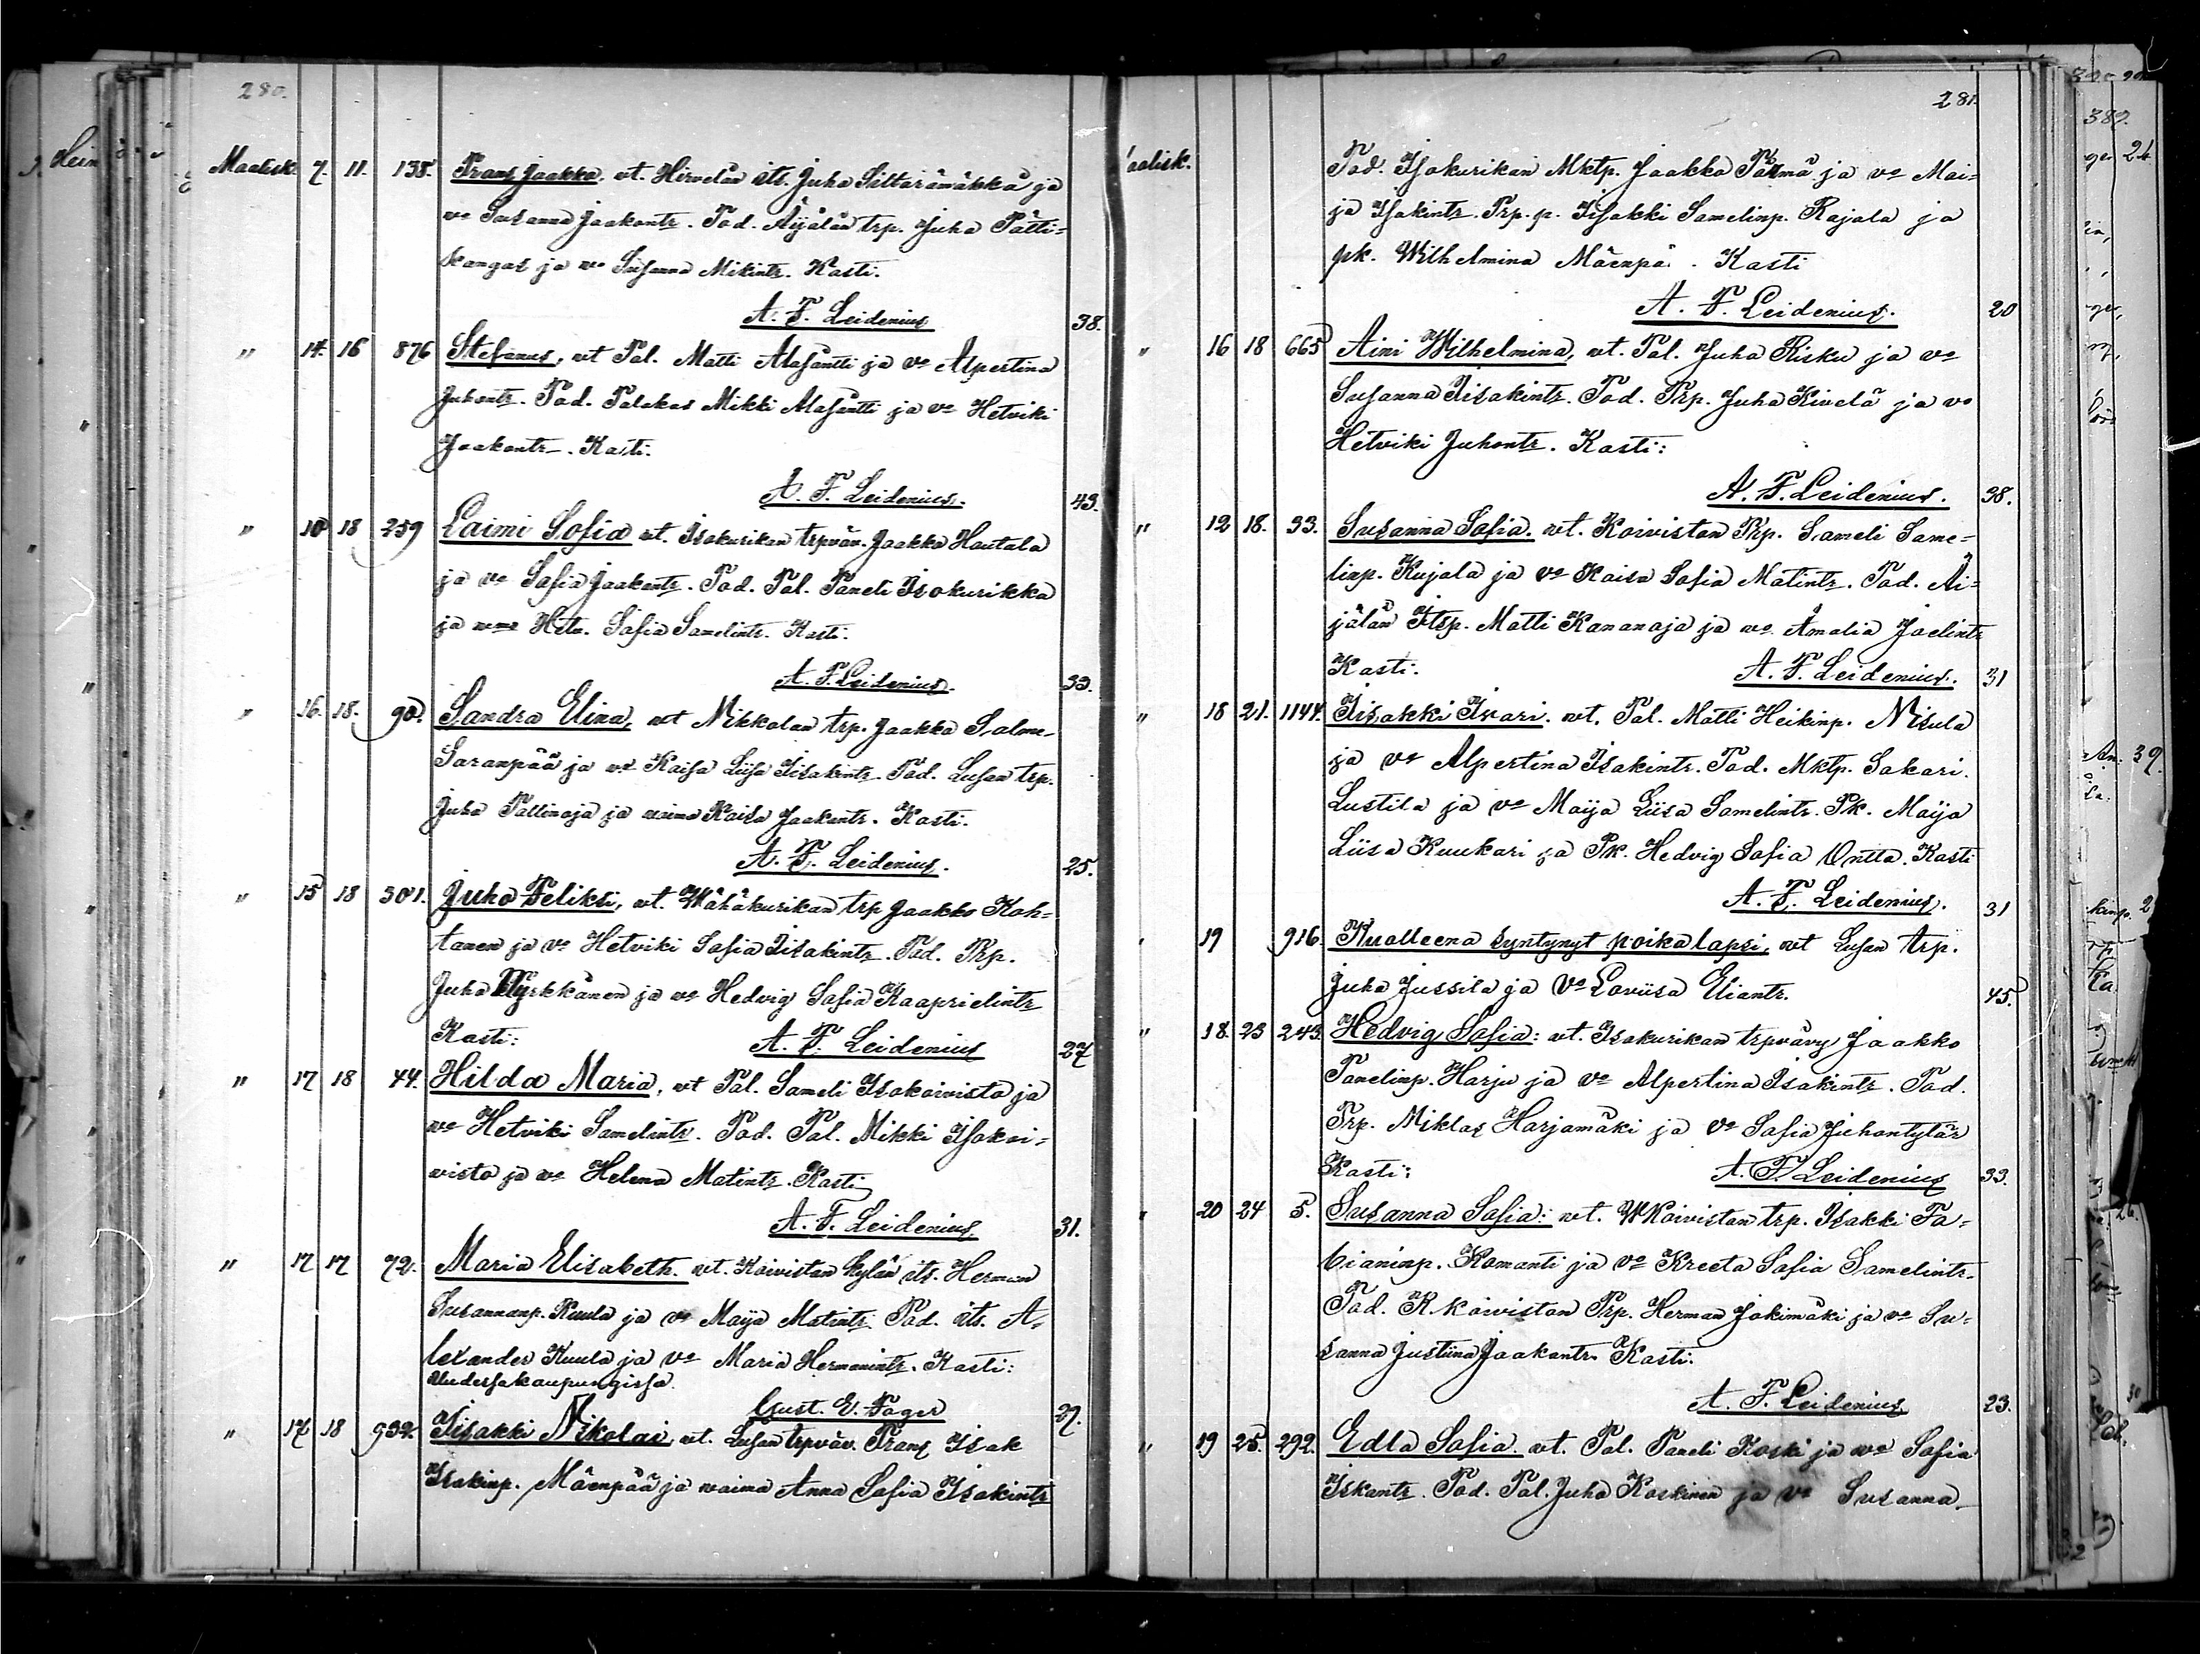 280.
Maalisk. 7. 11. 138. Frans Jaakko, vt. Hirvelän its. Juha Siltarämäkkä ja
vo Susanna Jaakontr. Tod. Äijälän trp. Juha Pälli=
kangas ja vo Susanna Mikintr. Kasti.
A. F. Leidenius 38.
" 14. 16 876 Stefanus, vt Tal. Matti Alasäntti ja vo Alpertina
Juhontr. Tod. Talokas Mikki Alasäntti ja vo Hetviki
Jaakontr. Kasti.
A. F. Leidenius. 43.
" 10 18 259 Laimi Sofia vt. Isokurikan trpväv. Jaakko Hautala
ja vo Sofia Jaakontr. Tod. Tal. Taneli Isokurikka
ja vmo Hetv. Sofia Samelintr. Kasti.
A. F. Leidenius. 33.
" 16. 18. 90. Sandra Elina, vt Mikkolan trp. Jaakko Salme-
Saranpää ja vo Kaisa Liisa Iisakintr. Tod. Lusan trp.
Juha Tallinoja ja vaimo Kaisa Jaakontr. Kasti.
A. F. Leidenius. 25.
" 15 18 301. Juho Feliksi, vt. Wähäkurikan trp Jaakko Koh=
tanen ja vo Hetviki Sofia Iisakintr. Tod. Trp.
Juha Myrkkänen ja vo Hedvig Sofia Kaaprielintr
Kasti: A. F. Leidenius 27
" 17 18 44. Hilda Maria, vt Tal. Sameli Isokoivisto ja
vo Hetviki Samelintr. Tod. Tal. Mikki Isokoi=
visto ja vo Helena Matintr. Kasti
A. F. Leidenius. 31.
" 17 17 72. Maria Elisabeth. vt. Koivistan kylän its. Herman
Susannanp. Kuula ja vo Maija Matintr Tod. its. A=
lexander Kuula ja vo Maria Hermanintr. Kasti:
Uudessakaupungissa.
Gust. E. Fager 27.
" 17 18 932. Iisakki Nikolai, vt. Lusan trpväv. Frans Isak
Isakinp. Mäenpää ja vaimo Anna Sofia Isakintr
281.
aalisk. Tod. Isokurikan Mktp. Jaakko Pärmä ja vo Mai=
ja Isakintr. Trp. p. Iisakki Samelinp. Rajala ja
pk. Wilhelmina Mäenpä. Kasti
A. F. Leidenius. 20
" 16 18 665 Aini Wilhelmina, vt. Tal. Juha Risku ja vo
Susanna Iisakintr. Tod. Trp. Juha Kivelä ja vo
Hetviki Juhontr. Kasti:
A. F. Leidenius. 38.
" 12 18. 33. Susanna Sofia. vt. Koivistan Trp. Sameli Same=
linp. Kujala ja vo Kaisa Sofia Matintr. Tod. Äi=
jälän Itsp. Matti Kananoja ja vo Amalia Joelintr
Kasti. A. F. Leidenius. 31
" 18 21. 1141. Iisakki Ivari. vt. Tal. Matti Heikinp. Nisula
ja vo Alpertina Isakintr. Tod. Mktp. Sakari
Lustila ja vo Maija Liisa Samelintr. Pk. Maija
Liisa Kuukari ja Pk. Hedvig Sofia Ontto. Kasti
A. F. Leidenius. 31
" 19 916. Kuolleena syntynyt poika lapsi, vt Lusan trp.
Juha Jussila ja Vo Loviisa Eliantr. 45.
" 18. 23 243. Hedvig Sofia: vt. Isokurikan trpvävy Jaakko
Tanelinp. Harju ja vo Alpertina Isakintr. Tod.
Trp. Miklas Harjamäki ja vo Sofia Juhontytär
Kasti: A. F. Leidenius 33.
" 20 24 5. Susanna Sofia: vt. WKoivistan trp. Isakki Fa=
bianinp. Komanti ja vo Kreeta Sofia Samelintr.
Tod. R.koivistan Trp. Herman Jokimäki ja vo Su=
sanna Justiina Jaakontr. Kasti.
A. F. Leidenius 23.
" 19 25. 292. Edla Sofia. vt. Tal. Taneli Koski ja vo Sofia
Iskantr. Tod. Tal. Juha Koskinen ja vo Susanna